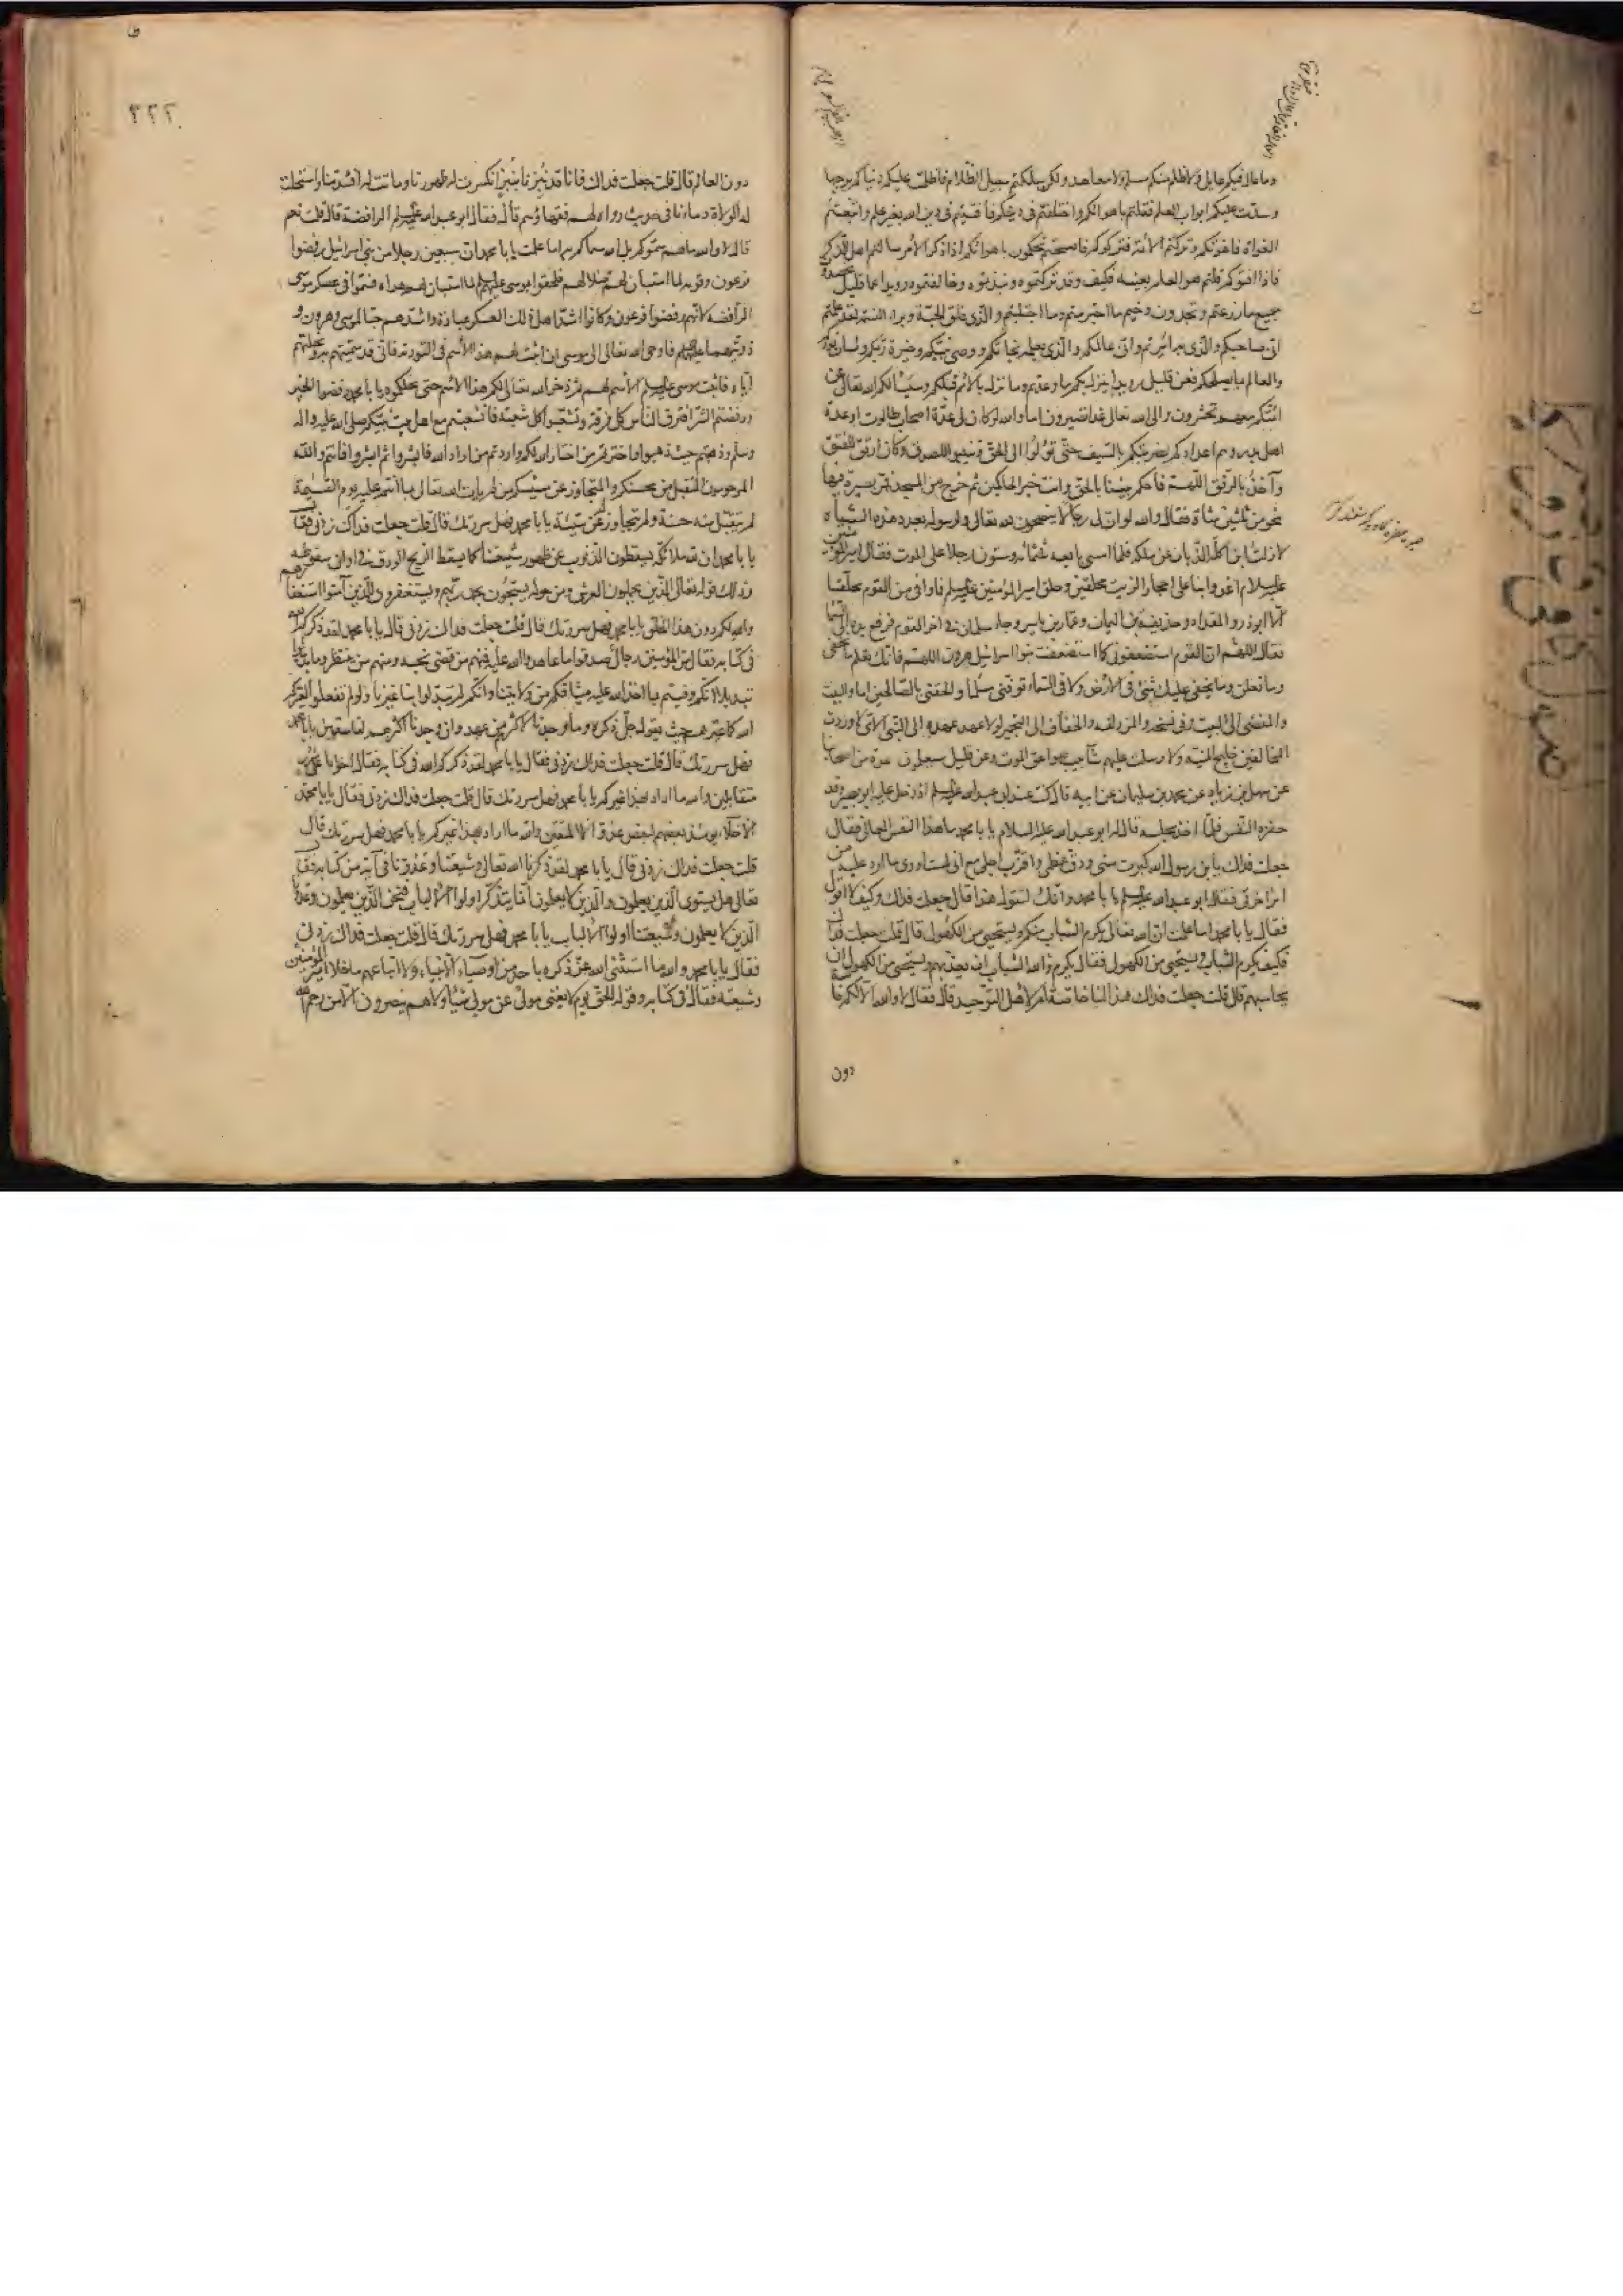 وما عال فيكم عايل ولا ظلم منكم مسلم ولا معاهد ولكن سلكتم سبيل الظلام فاظلمت عليكم دنياكم برحبها
وسدت عليكم ابواب العلم فقلتم باهوائكم واختلفتم في دينكم فافتيتم في دين الله بغير علم واتبعتم
الغواة فاغوتكم وتركتم الائمة فتركوكم فاصبحتم تحكمون باهوائكم اذا ذكر الامر سالتم اهل الذكر
فاذا افتوكم قلتم هو العلم بعينه فكيف وقد تركتموه ونبذتموه وخالفتموه رويدا عما قليل تحصدون
جميع ما زرعتم وتجدون وخيم ما اجترمتم وما اجتلبتم والذي فلق الحبة وبرا النسمة لقد علمتم
اني صاحبكم والذي به امرتم واني عالمكم والذي بعلمه نجاتكم ووصي نبيكم وخيرة ربكم ولسان نوركم
والعالم بما يصلحكم فعن قليل رويدا ينزل بكم ما وعدتم وما نزل بالامم قبلكم وسيسالكم الله تعالى عن
ائمتكم معهم تحشرون والى الله تعالى غدا تصيرون اما والله لو كان لي عدة اصحاب طالوت او عدة
اهل بدر وهم اعداؤكم لضربتكم بالسيف حتى تؤلوا الى الحق وتنيبوا للصدق وكان ارتق للفتق
وآخذ بالرفق اللهم فاحكم بيننا بالحق وانت خير الحاكمين ثم خرج من المسجد فمر بصيرة فيها
نحو من ثلثين شاة فقال والله لو ان لي رجالا ينصحون لله تعالى ولرسوله بعدد هذه الشياه
لازلت ابن آكلة الذبان عن ملكه فلما امسى بايعه ثلثمائة وستون رجلا على الموت فقال امير المؤمنين
عليه السلام اغدوا بنا على احجار الزيت محلقين وحلق امير المؤمنين عليه السلم فما وافى من القوم محلقا
الا ابو ذر والمقداد وحذيفة بن اليمان وعمار بن ياسر وجاء سلمان في اخر القوم فرفع يده الى السماء
فقال اللهم ان القوم استضعفوني كما استضعفت بنو اسرائيل هرون اللهم فانك تعلم ما نخفي
وما نعلن وما يخفى عليك شئ في الارض ولا في السماء توفني مسلما والحقني بالصالحين اما والبيت
والمفضي الى البيت وفي نسخه والمزدلفه والخفاف الى التجمير لولا عهد عهده الى النبي الامي لاوردت
المخالفين خليج المنية ولارسلت عليهم شآبيب صواعق الموت وعن قليل سيعلمون عدة من اصحابنا
عن سهل بن زياد عن محمد بن سليمان عن ابيه قال كنت عند ابي عبد الله عليه السلم اذ دخل عليه ابو بصير وقد
حفزه النفس فلما اخذ مجلسه قال له ابو عبد الله عليه السلام يا با محمد ما هذا النفس العالي فقال
جعلت فداك يابن رسول الله كبرت سني ودق عظمي واقترب اجلي مع انني لست ادري ما ارد عليه من
امر اخرتي فقال ابو عبد الله عليه السلم يا با محمد وانك لتقول هذا قال جعلت فداك وكيف لا اقول
فقال يا با محمد اما علمت ان الله تعالى يكرم الشباب منكم ويستحيي من الكهول قال قلت جعلت فداك
فكيف يكرم الشباب ويستحيي من الكهول فقال يكرم والله الشباب ان يعذبهم ويستحيي من الكهول ان
يحاسبهم قال قلت جعلت فداك هذا لنا خاصة ام لاهل التوحيد قال فقال لا والله الا لكم خاصة
دون
٣٢٢
دون العالم قال قلت جعلت فداك فانا قد نبزنا نبزا انكسرت له ظهورنا وماتت له افئدتنا واستحلت
له الولاة دماءنا في حديث رواه لهم فقهاؤهم قال فقال ابو عبد الله عليه السلم الرافضة قال قلت نعم
قال لا والله ما هم سموكم بل الله سماكم به اما علمت يا با محمد ان سبعين رجلا من بني اسرائيل رفضوا
فرعون وقومه لما استبان لهم ضلالهم فلحقوا بموسى عليه السلم لما استبان لهم هداه فسموا في عسكر موسى
الرافضة لانهم رفضوا فرعون وكانوا اشد اهل ذلك العسكر عبادة واشدهم حبا لموسى وهرون و
ذريتهما عليهما السلم فاوحى الله تعالى الى موسى ان اثبت لهم هذا الاسم في التورية فاني قد سميتهم به ونحلتهم
اياه فاثبت موسى عليه السلم الاسم لهم ثم ذخر الله تعالى لكم هذا الاسم حتى نحلكموه يا با محمد رفضوا الخير
ورفضتم الشر افترق الناس كل فرقة وتشعبوا كل شعبة فانشعبتم مع اهل بيت نبيكم صلى الله عليه واله
وسلم وذهبتم حيث ذهبوا واخترتم من اختار الله لكم واردتم من اراد الله فابشروا ثم ابشروا فانتم والله
المرحومون المتقبل من محسنكم والمتجاوز عن مسيئكم من لم يات الله تعالى بما انتم عليه يوم القيمة
لم يتقبل منه حسنة ولم يتجاوز عن سيئة يا با محمد فهل سررتك قال قلت جعلت فداك زدني فقال
يا با محمد ان لله ملائكة يسقطون الذنوب عن ظهور شيعتنا كما يسقط الريح الورق في اوان سقوطه
وذلك قوله تعالى الذين يحملون العرش ومن حوله يسبحون بحمد ربهم ويستغفرون للذين آمنوا استغفارهم
والله لكم دون هذا الخلق يا با محمد فهل سررتك قال قلت جعلت فداك زدني قال يا با محمد لقد ذكركم الله
في كتابه فقال من المؤمنين رجال صدقوا ما عاهدوا الله عليه فمنهم من قضى نحبه ومنهم من ينتظر وما بدلوا
تبديلا انكم وفيتم بما اخذ الله عليه ميثاقكم من ولايتنا وانكم لم تبدلوا بنا غيرنا ولو لم تفعلوا لعيركم
الله كما عيرهم حيث يقول جل ذكره وما وجدنا لاكثرهم من عهد وان وجدنا اكثرهم لفاسقين يا با محمد
فهل سررتك قال قلت جعلت فداك زدني فقال يا با محمد لقد ذكركم الله في كتابه فقال اخوانا على سرر
متقابلين والله ما اراد بهذا غيركم يا با محمد فهل سررتك قال قلت جعلت فداك زدني فقال يا با محمد
الاخلاء يومئذ بعضهم لبعض عدو الا المتقين والله ما اراد بهذا غيركم يا با محمد فهل سررتك قال
قلت جعلت فداك زدني قال يا با محمد لقد ذكرنا الله تعالى وشيعتنا وعدونا في آية من كتابه فقال
تعالى هل يستوي الذين يعلمون والذين لا يعلمون انما يتذكر اولوا الالباب فنحن الذين يعلمون وعدونا
الذين لا يعلمون وشيعتنا اولوا الالباب يا با محمد فهل سررتك قال قلت جعلت فداك زدني
فقال يا با محمد والله ما استثنى الله عز ذكره باحد من اوصياء الانبياء ولا اتباعهم ما خلا امير المؤمنين
وشيعته فقال في كتابه وقوله الحق يوم لا يغني مولى عن مولى شيئا ولا هم ينصرون الا من رحم الله